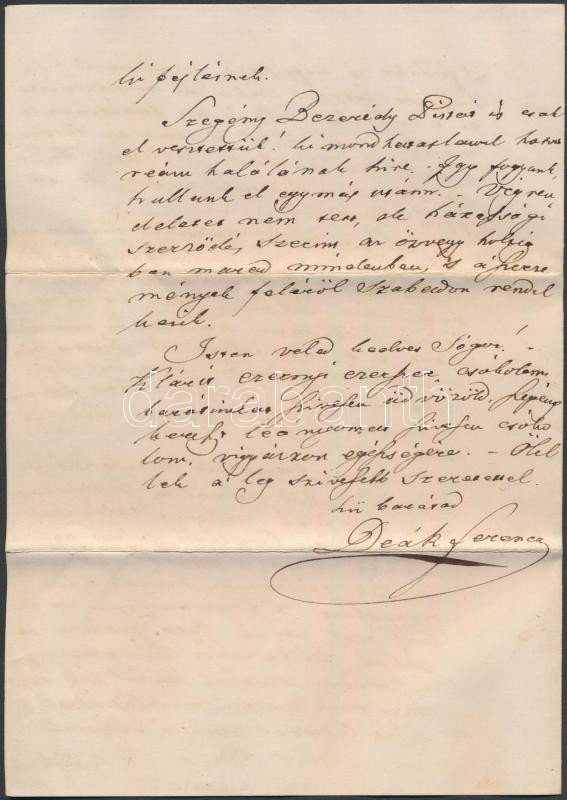 ki fejtésnek.
Szegény Bezerédy Pistát is csak
el vesztettük! ki mondhatatlanul hatott
reám halálának híre. Így fogyunk,
hullunk el egymás utánn. – Végren
deletet nem tett, de házassági
szerződés szerint az özvegy holtig
ban marad mindenben, is a szerze
mények feléről szabadon rendel
kezik.
Isten veled kedves Sógor! –
Klárit ezernyi ezerszer csókolom
barátimat szívesen üdvözöld,
szívesen csóko
lom, vigyázzon egésségére. – Ölel
lek a leg szívesebb szeretettel.
hű barátod
Deák Ferencz
darabanth